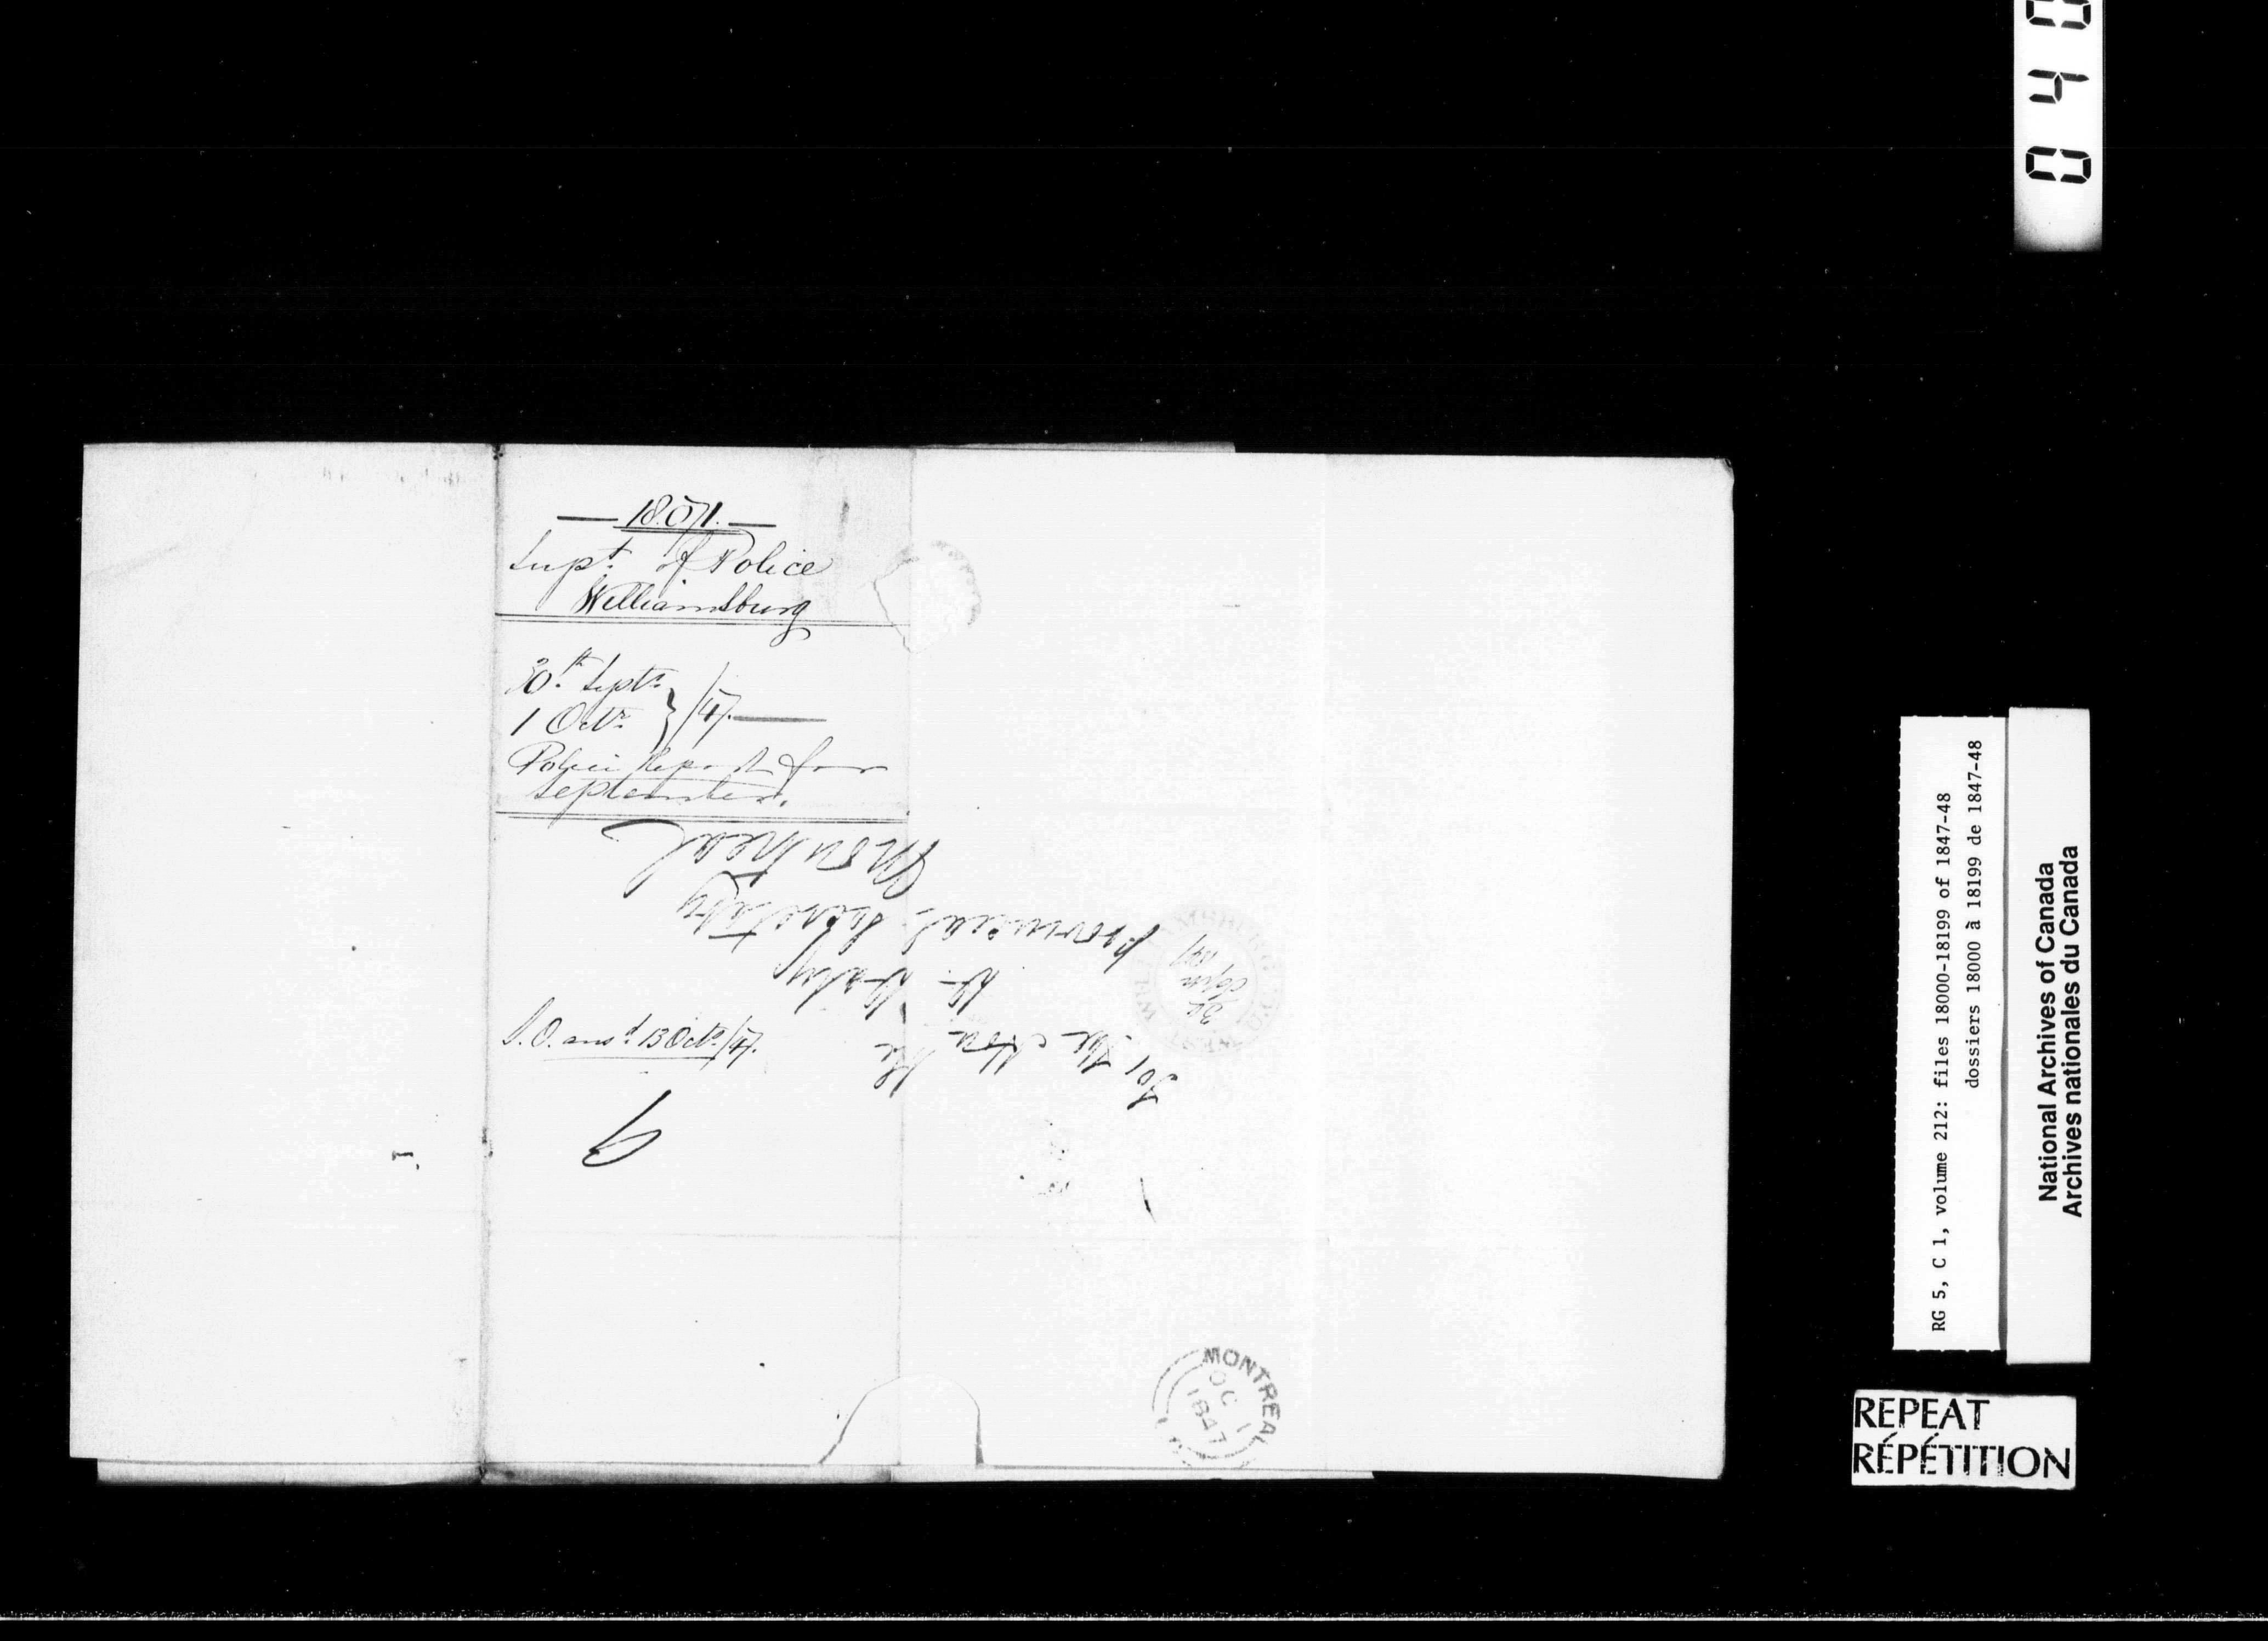 18.071.
Supt. of Police
Williamsburg
30th Septr
1 Octr } /47.
Police Report for
September.
For the Honble
the
D. Daly
Provincial Secretary
Montreal
ansd 13 Octr /47.
9
WILLIAMSBURG
WEST
Septr
1847
MONTREAL
OC 1
1847
040
RG 5, C 1, volume 212: files 18000-18199 of 1847-48
dossiers 18000 à 18199 de 1847-48
National Archives of Canada
Archives nationales du Canada
REPEAT
RÉPÉTITION